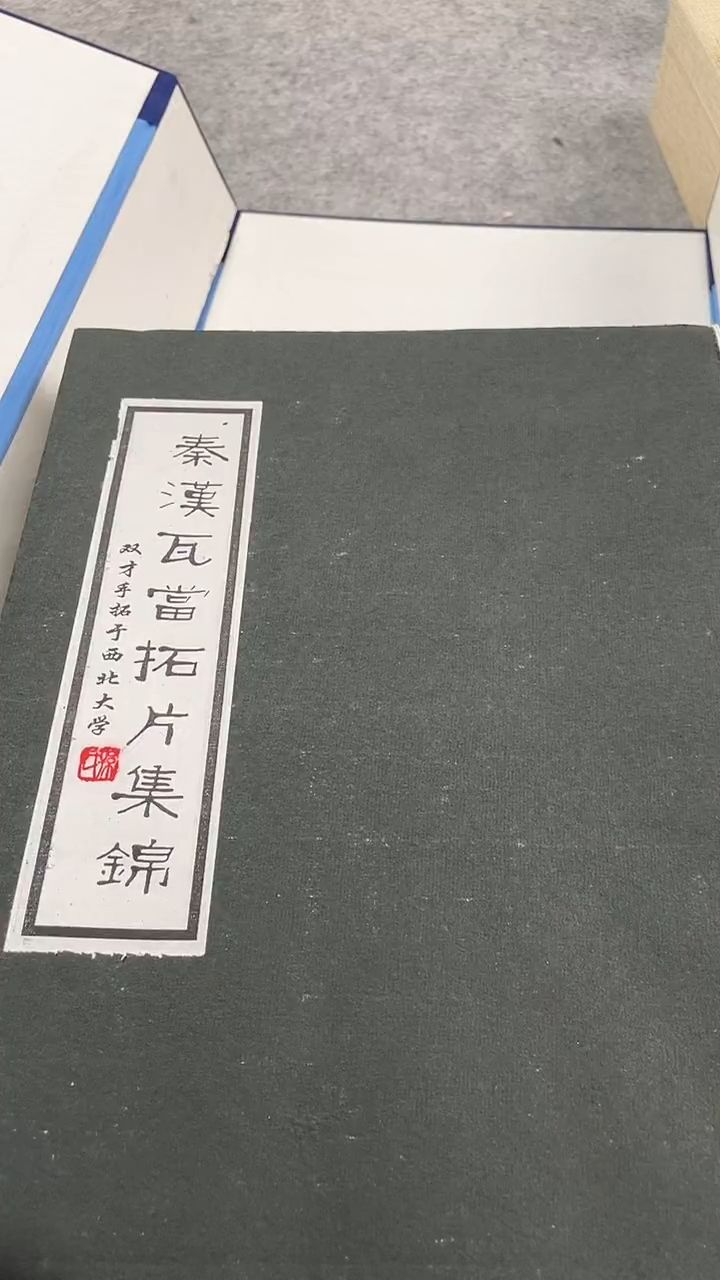 秦漢瓦當拓片集錦
双才手拓于西北大学